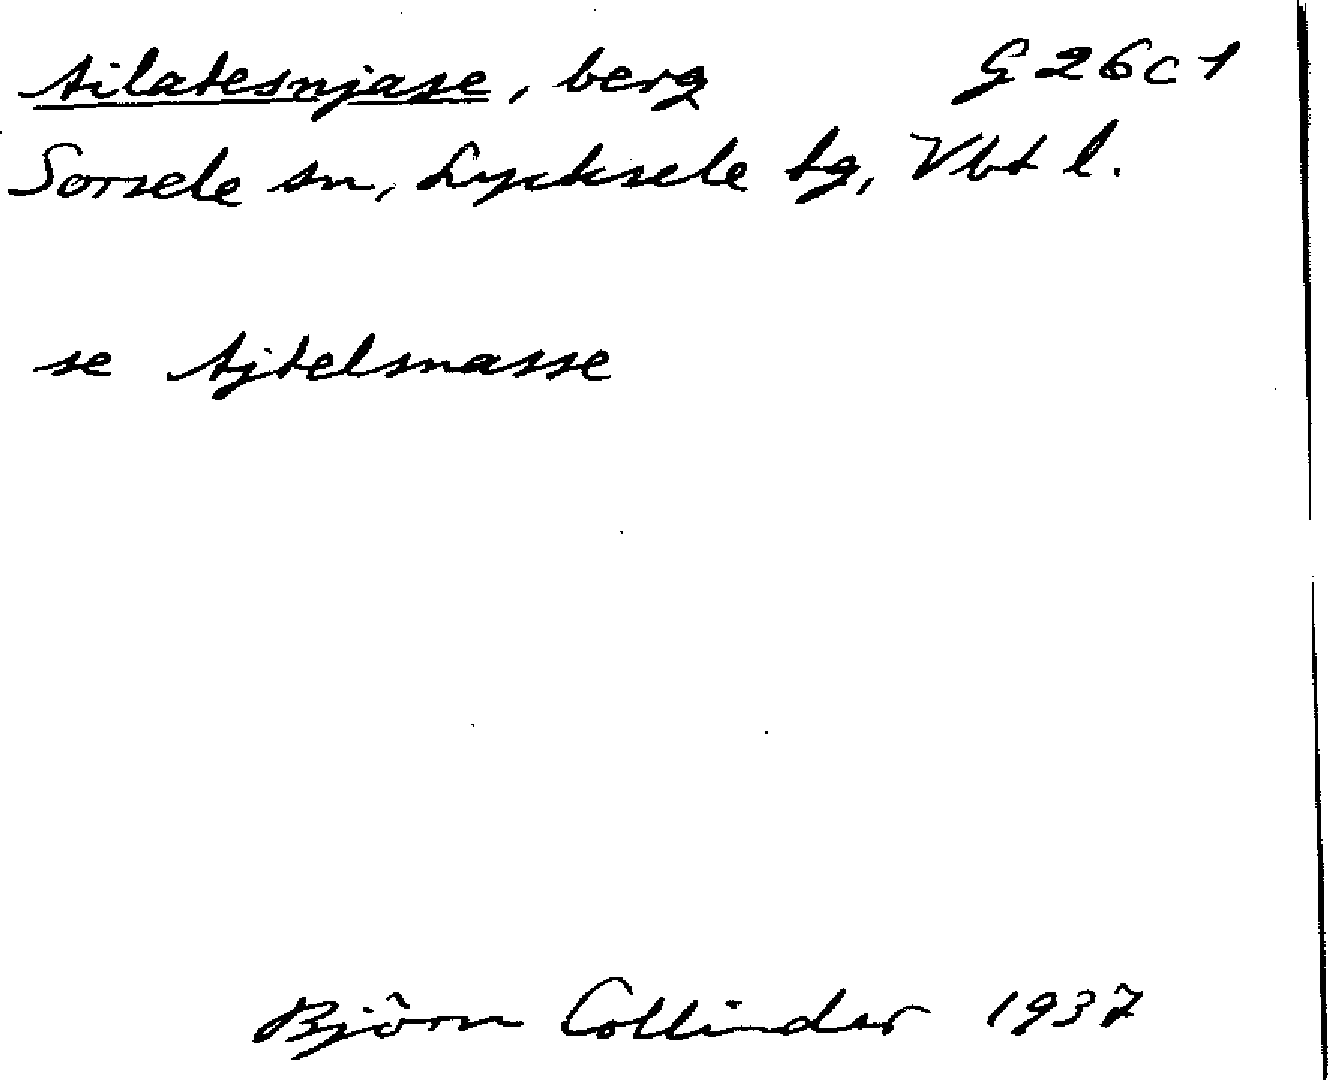 Ailatesnjase, berg G 26 c 1
Sorsele sn, Lycksele tg, Vbt l.
se Ajtelsnasse
Björn Collinder 1937